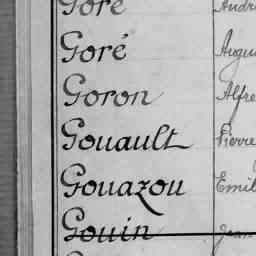 Goré André
Goré
Goron Alfre
Gouault Pierre
Gouazou Emil
Gouin Jean